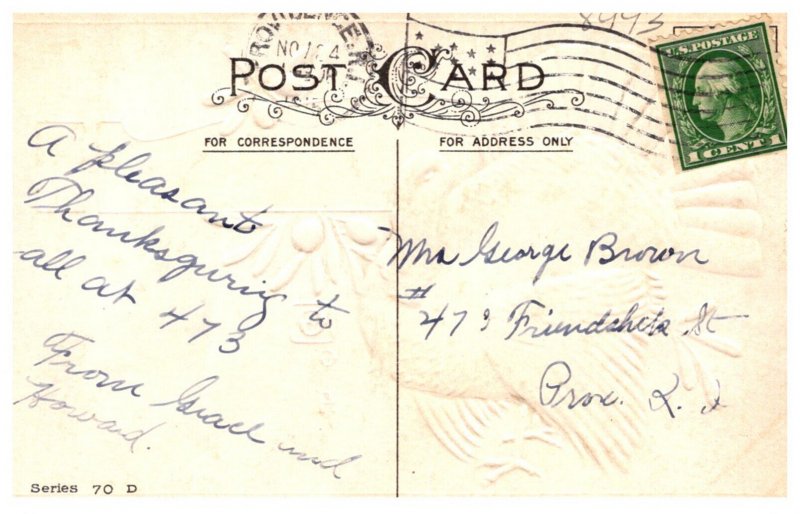 8443
PROVIDENCE, R.I.
NOV 24
U.S. POSTAGE
1 CENT 1
POST CARD
FOR CORRESPONDENCE
FOR ADDRESS ONLY
A pleasant
Thanksgiving to
all at 473
From Grace and
Howard.
Mrs George Brown
# 473 Friendship St
Prov. R. I
Series 70 D